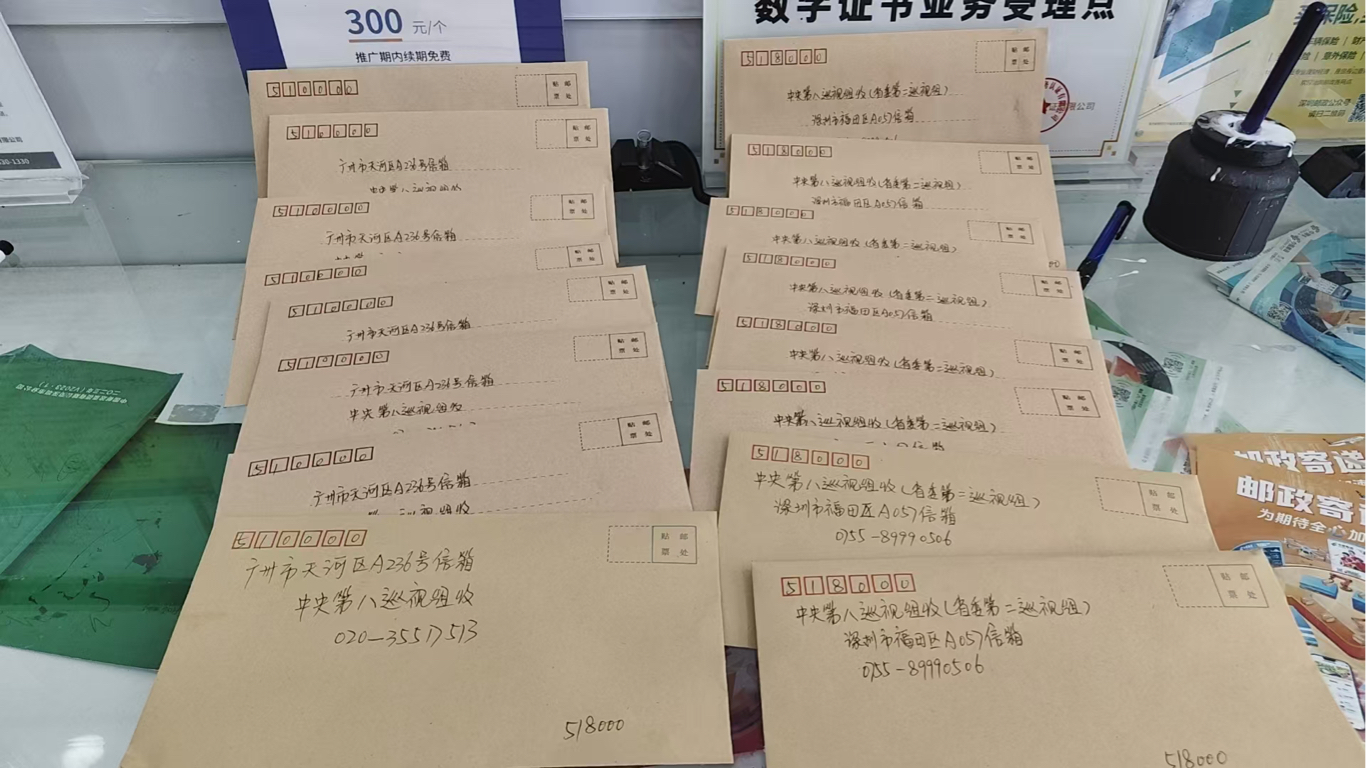 300 元/个
推广期内续期免费
数字证书业务受理点
510000
贴邮
票处
510000
贴邮
票处
广州市天河区A236号信箱
中央第八巡视组收
510000
贴邮
票处
广州市天河区A236号信箱
510000
贴邮
票处
510000
贴邮
票处
广州市天河区A236号信箱
510000
贴邮
票处
广州市天河区A236号信箱
中央第八巡视组收
510000
贴邮
票处
广州市天河区A236号信箱
第八巡视组收
510000
贴邮
票处
广州市天河区A236号信箱
中央第八巡视组收
020-35517513
518000
518000
贴邮
票处
中央第八巡视组收(省委第二巡视组)
深圳市福田区A057信箱
518000
贴邮
票处
中央第八巡视组收(省委第二巡视组)
深圳市福田区A057信箱
518000
贴邮
票处
中央第八巡视组收(省委第二巡视组)
518000
贴邮
票处
中央第八巡视组收(省委第二巡视组)
深圳市福田区A057信箱
518000
贴邮
票处
中央第八巡视组收(省委第二巡视组)
518000
贴邮
票处
中央第八巡视组收(省委第二巡视组)
518000
贴邮
票处
中央第八巡视组收(省委第二巡视组)
深圳市福田区A057信箱
0755-89990506
518000
贴邮
票处
中央第八巡视组收(省委第二巡视组)
深圳市福田区A057信箱
0755-89990506
518000
保险
车辆保险
意外保险
邮政寄递
邮政寄
为期待全心加